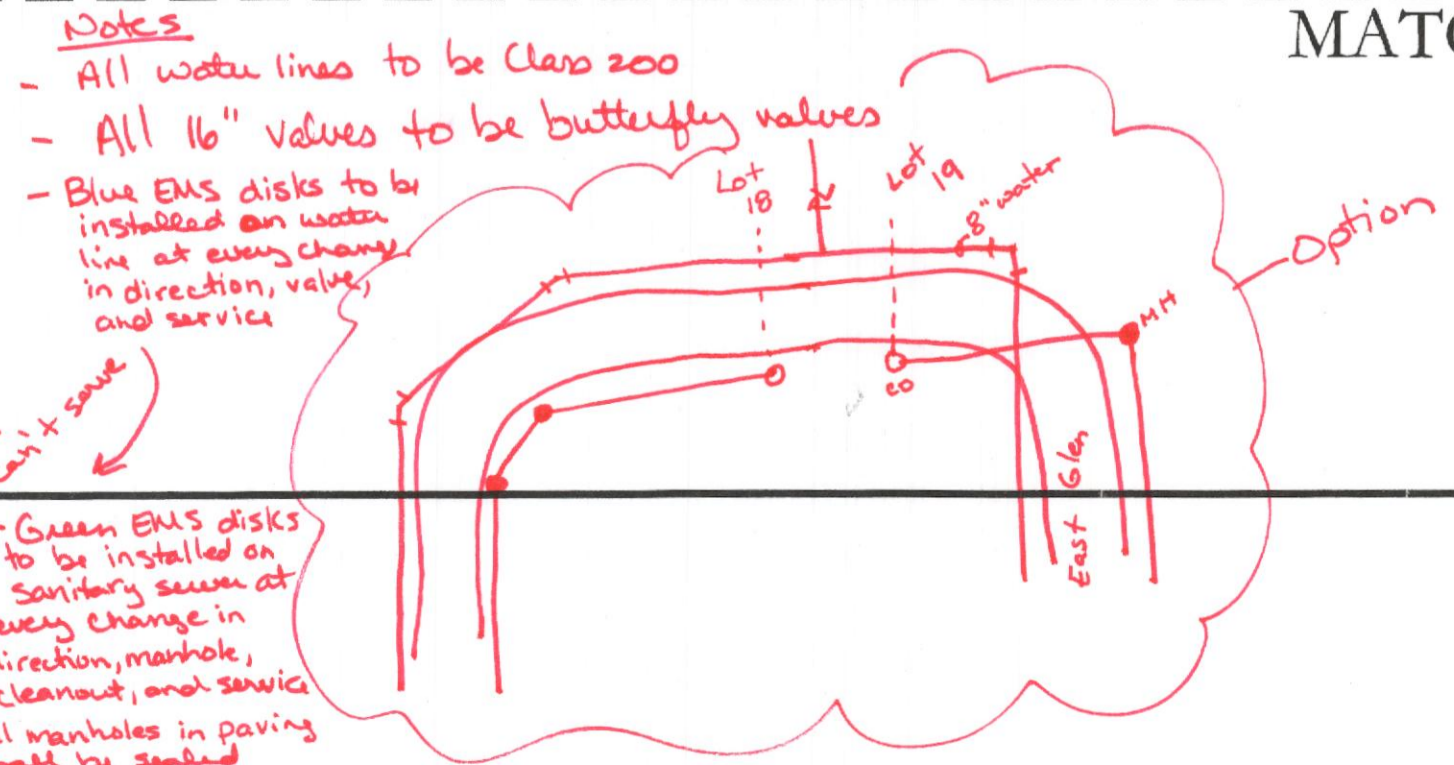 MATC
Notes
- All water lines to be Class 200
- All 16" valves to be butterfly valves
- Blue EMS disks to be
installed on water
line at every change
in direction, valve,
and service
can't serve
- Green EMS disks
to be installed on
sanitary sewer at
every change in
direction, manhole,
cleanout, and service
manholes in paving
be sealed
Lot
18
Lot
19
8" water
Option
MH
CO
East Glen